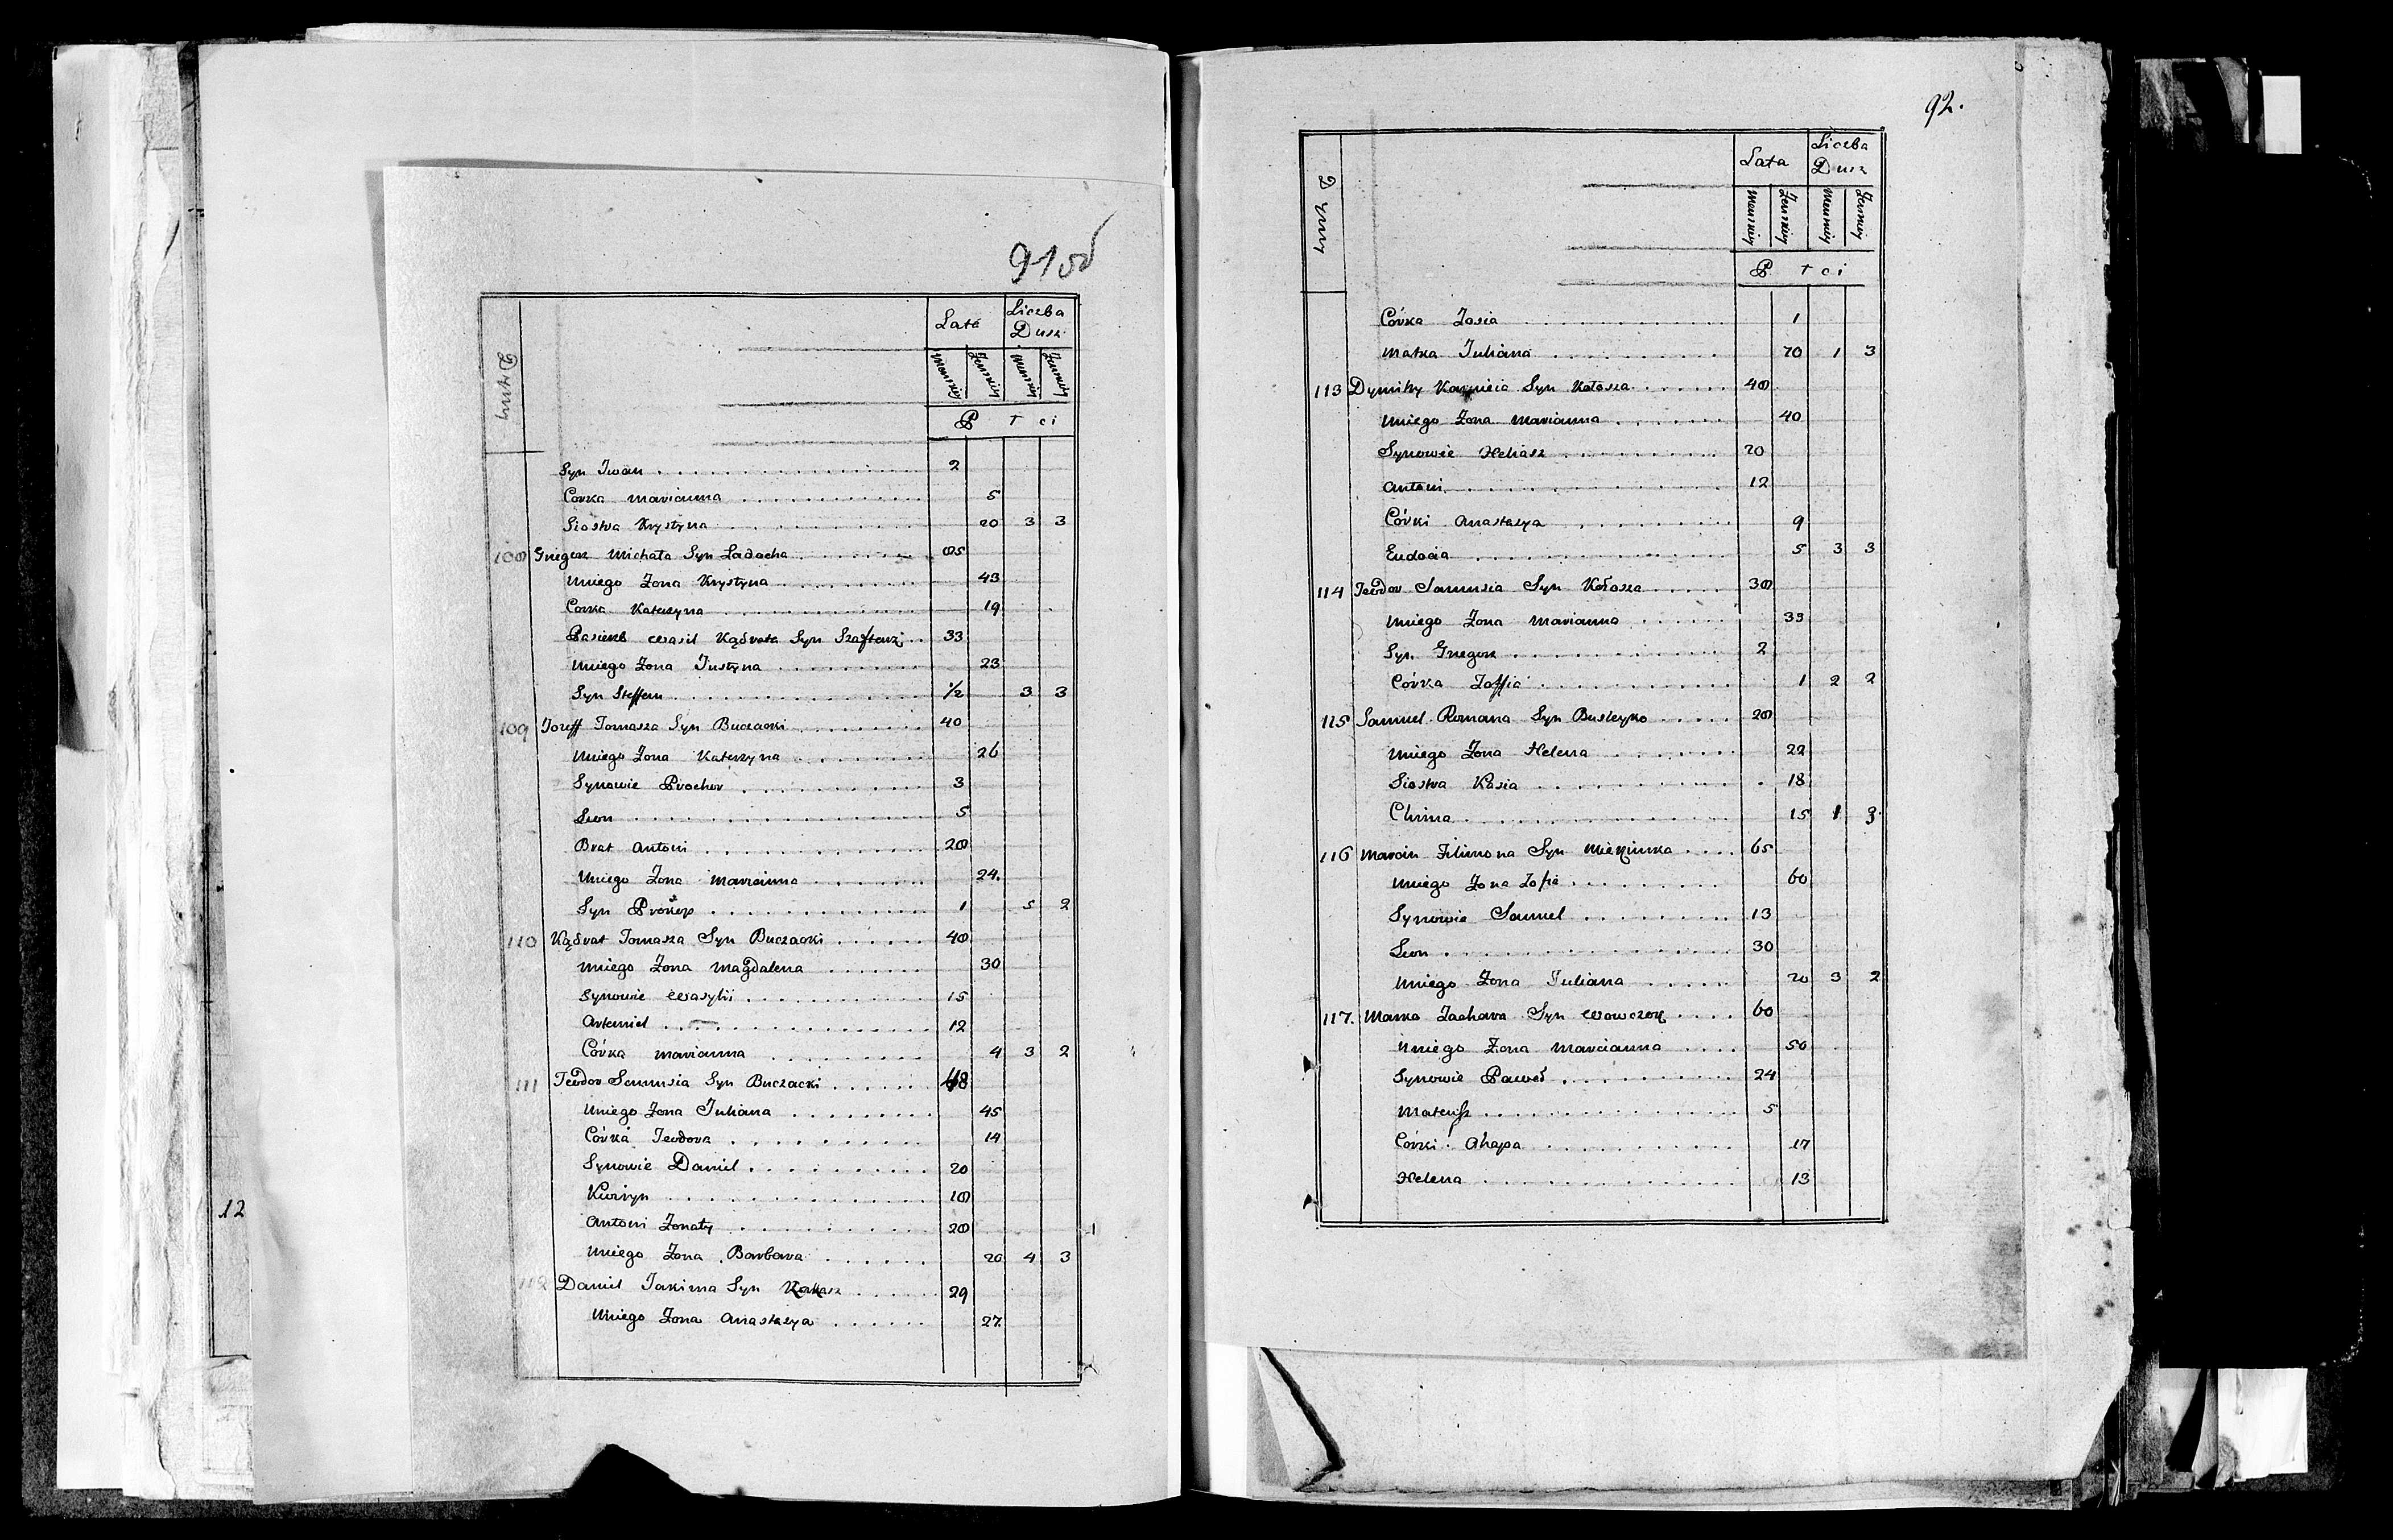 91об
Dymy
Lata
Liczba Dusz
Męnzkiey Zenskiey Męnskiey Zenskiey
P T ci
Syn Iwan 2
Corka Marianna 5
Siostra Krystyna 20 3 3
108 Gregier Michała Syn Ladacha 85
Uniego Zona Krystyna 43
Corka Katerzyna 19
Pasierb Wasil Kądrata Syn 33
Uniego Zona Justyna 23
Syn Steffan 1/2 3 3
109 Jozeff Tomasza Syn Buczacki 40
Uniego Zona Katerzyna 26
Synowie Prochor 3
Leon 5
Brat Antoni 28
Uniego Zona Marianna 24.
Syn Prokop 1 5 2
110 Kądrat Tomasza Syn Buczacki 48
Uniego Zona Magdalena 30
Synowie Wasyli 15
Artemiel 12
Córka Marianna 4 3 2
111 Teodor Samusia Syn Buczacki 48
Uniego Zona Juliana 45
Córka Teodora 14
Synowie Daniel 20
18
Antoni Zonaty 28
Uniego Zona Barbara 20 4 3
112 Daniel Jakima Syn 29
Uniego Zona Anastazya 27.
12
92.
Dymy
Lata
Liczba Dusz
Menzkiey Zenskiey Menskiey Zenskiey
P T ci
Córka Zosia 1
Matka Juliana 70 1 3
113 Dymitry Karpieia Syn Kołosza 48
Uniego Zona Marianna 40
Synowie Heliasz 20
Antoni 12
Córki Anastazya 9
Eudocia 5 3 3
114 Teodor Samusia Syn Kołosza 38
Uniego Zona Marianna 33
Syn Gregor 2
Córka Zoffia 1 2 2
115 Samuel Romana Syn Busleyko 28
Uniego Zona Helena 22
Siostra Kasia 18
Chima 15 1 3
116 Marcin Filimona Syn 65
Uniego Zona Zofia 60
Synowie Samuel 13
Leon 30
Uniego Zona Juliana 20 3 2
117. Marko Zachara Syn Wowczok 60
Uniego Zona Marcianna 50
Synowie Paweł 24
Mateusz 5
Córki Ahapa 17
Helena 13